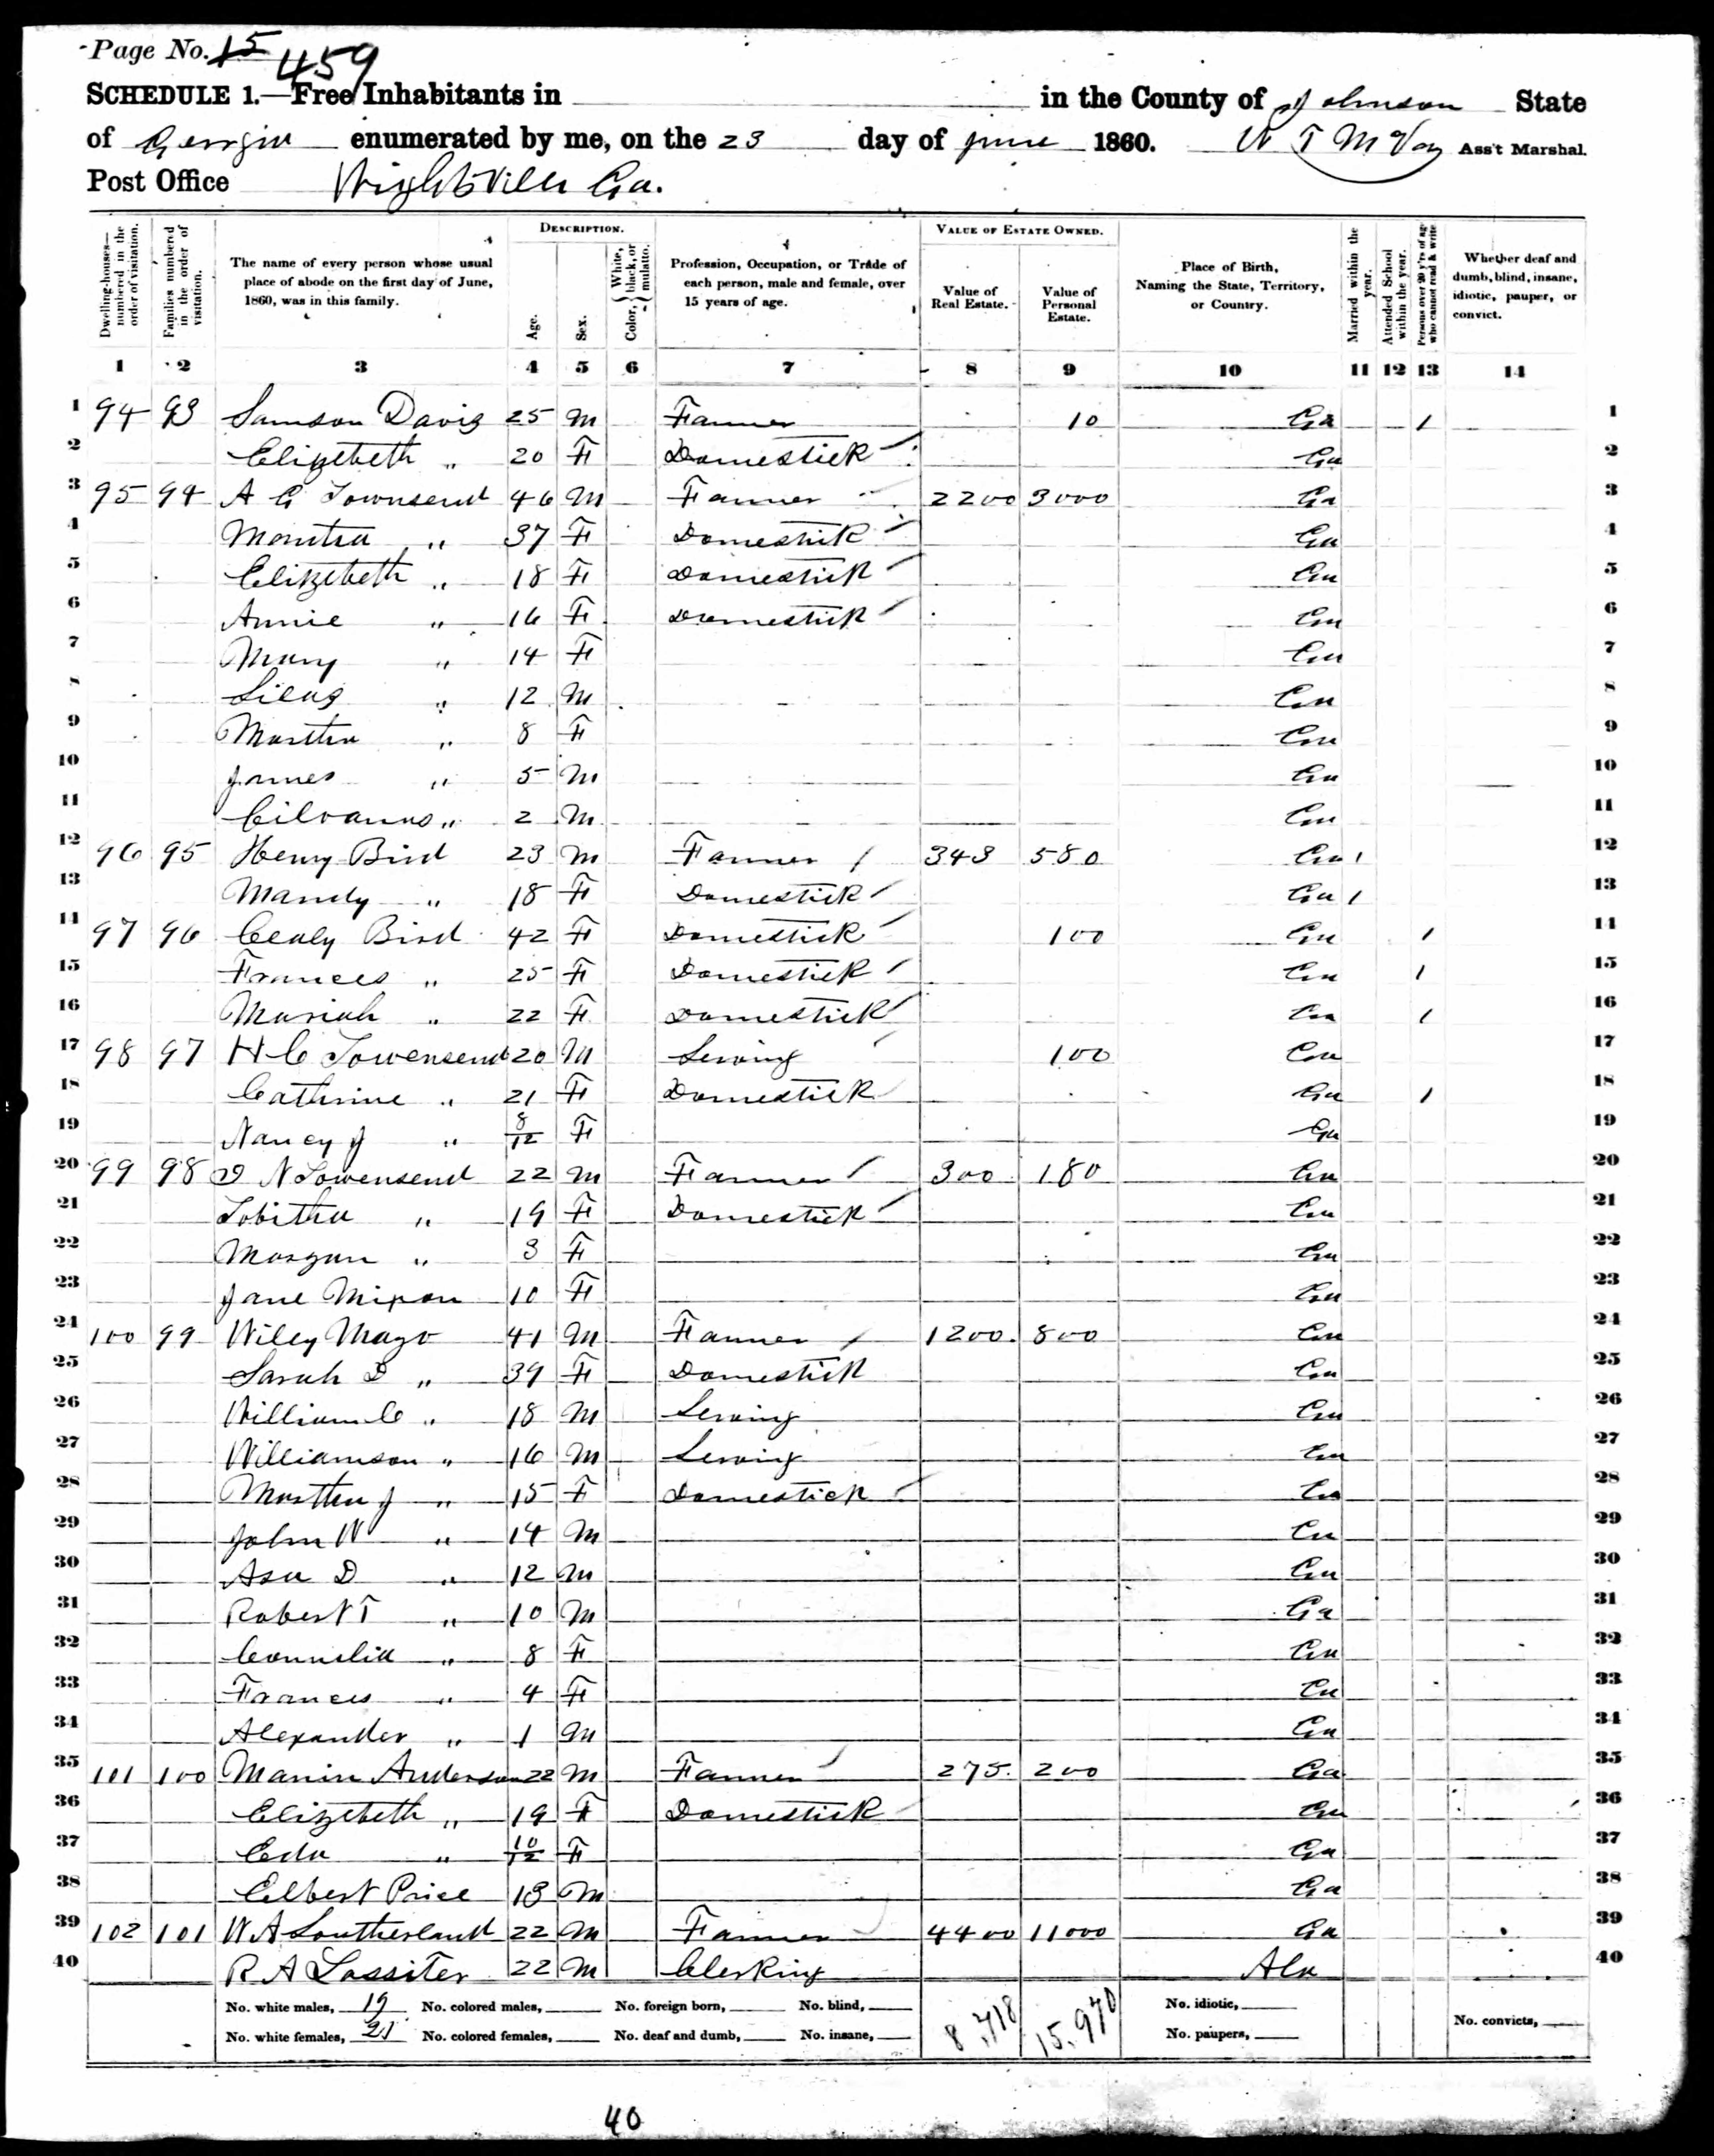 Page No. 15
459
SCHEDULE 1.—Free Inhabitants in in the County of Johnson State
of Georgia enumerated by me, on the 23 day of June 1860. W T McVay Ass't Marshal.
Post Office Wrightsville Ga.
Dwelling-houses—numbered in the order of visitation. Families numbered in the order of visitation. The name of every person whose usual place of abode on the first day of June, 1860, was in this family. DESCRIPTION. Age. Sex. Color, {White, black, or mulatto. Profession, Occupation, or Trade of each person, male and female, over 15 years of age. VALUE OF ESTATE OWNED. Value of Real Estate. Value of Personal Estate. Place of Birth, Naming the State, Territory, or Country. Married within the year. Attended School within the year. Persons over 20 y'rs of age who cannot read & write. Whether deaf and dumb, blind, insane, idiotic, pauper, or convict.
1 2 3 4 5 6 7 8 9 10 11 12 13 14
1 94 93 Samson Davis 25 M Farmer 10 Ga 1 1
2 Elizebeth " 20 F Domestick Ga 2
3 95 94 A G Townsend 46 M Farmer 2200 3000 Ga 3
4 " 37 F Domestick Ga 4
5 Elizebeth " 18 F Domestick Ga 5
6 Annie " 16 F Domestick Ga 6
7 Mary " 14 F Ga 7
8 Silas " 12 M Ga 8
9 Martha " 8 F Ga 9
10 James " 5 M Ga 10
11 Cilvanus " 2 M Ga 11
12 96 95 Henry Bird 23 M Farmer / 343 580 Ga 1 12
13 Mandy " 18 F Domestick Ga 1 13
14 97 96 Cealy Bird 42 F Domestick 100 Ga 1 14
15 Frances " 25 F Domestick Ga 1 15
16 Mariah " 22 F Domestick Ga 1 16
17 98 97 H C Townsend 20 M Serving 100 Ga 17
18 Cathrine " 21 F Domestick Ga 1 18
19 Nancy J " 8/12 F Ga 19
20 99 98 D N Townsend 22 M Farmer 300 180 Ga 20
21 Tobitha " 19 F Domestick Ga 21
22 Morgan " 3 F Ga 22
23 Jane Mixon 10 F Ga 23
24 100 99 Wiley Mayo 41 M Farmer 1200 800 Ga 24
25 Sarah D " 39 F Domestick Ga 25
26 William C " 18 M Serving Ga 26
27 Williamson " 16 M Serving Ga 27
28 Martha J " 15 F Domestick Ga 28
29 John W " 14 M Ga 29
30 Asa D " 12 M Ga 30
31 Robert T " 10 M Ga 31
32 Cornelia " 8 F Ga 32
33 Frances " 4 F Ga 33
34 Alexander " 1 M Ga 34
35 101 100 Anderson 22 M Farmer 275 200 Ga 35
36 Elizebeth " 19 F Domestick Ga 36
37 Eda " 10/12 F Ga 37
38 Elbert Price 13 M Ga 38
39 102 101 W A Southerland 22 M Farmer 4400 11000 Ga 39
40 R A Lassiter 22 M Clerking Ala 40
No. white males, 19 No. colored males, No. foreign born, No. blind, 8,718 15,970 No. idiotic,
No. white females, 21 No. colored females, No. deaf and dumb, No. insane, No. paupers, No. convicts,
40